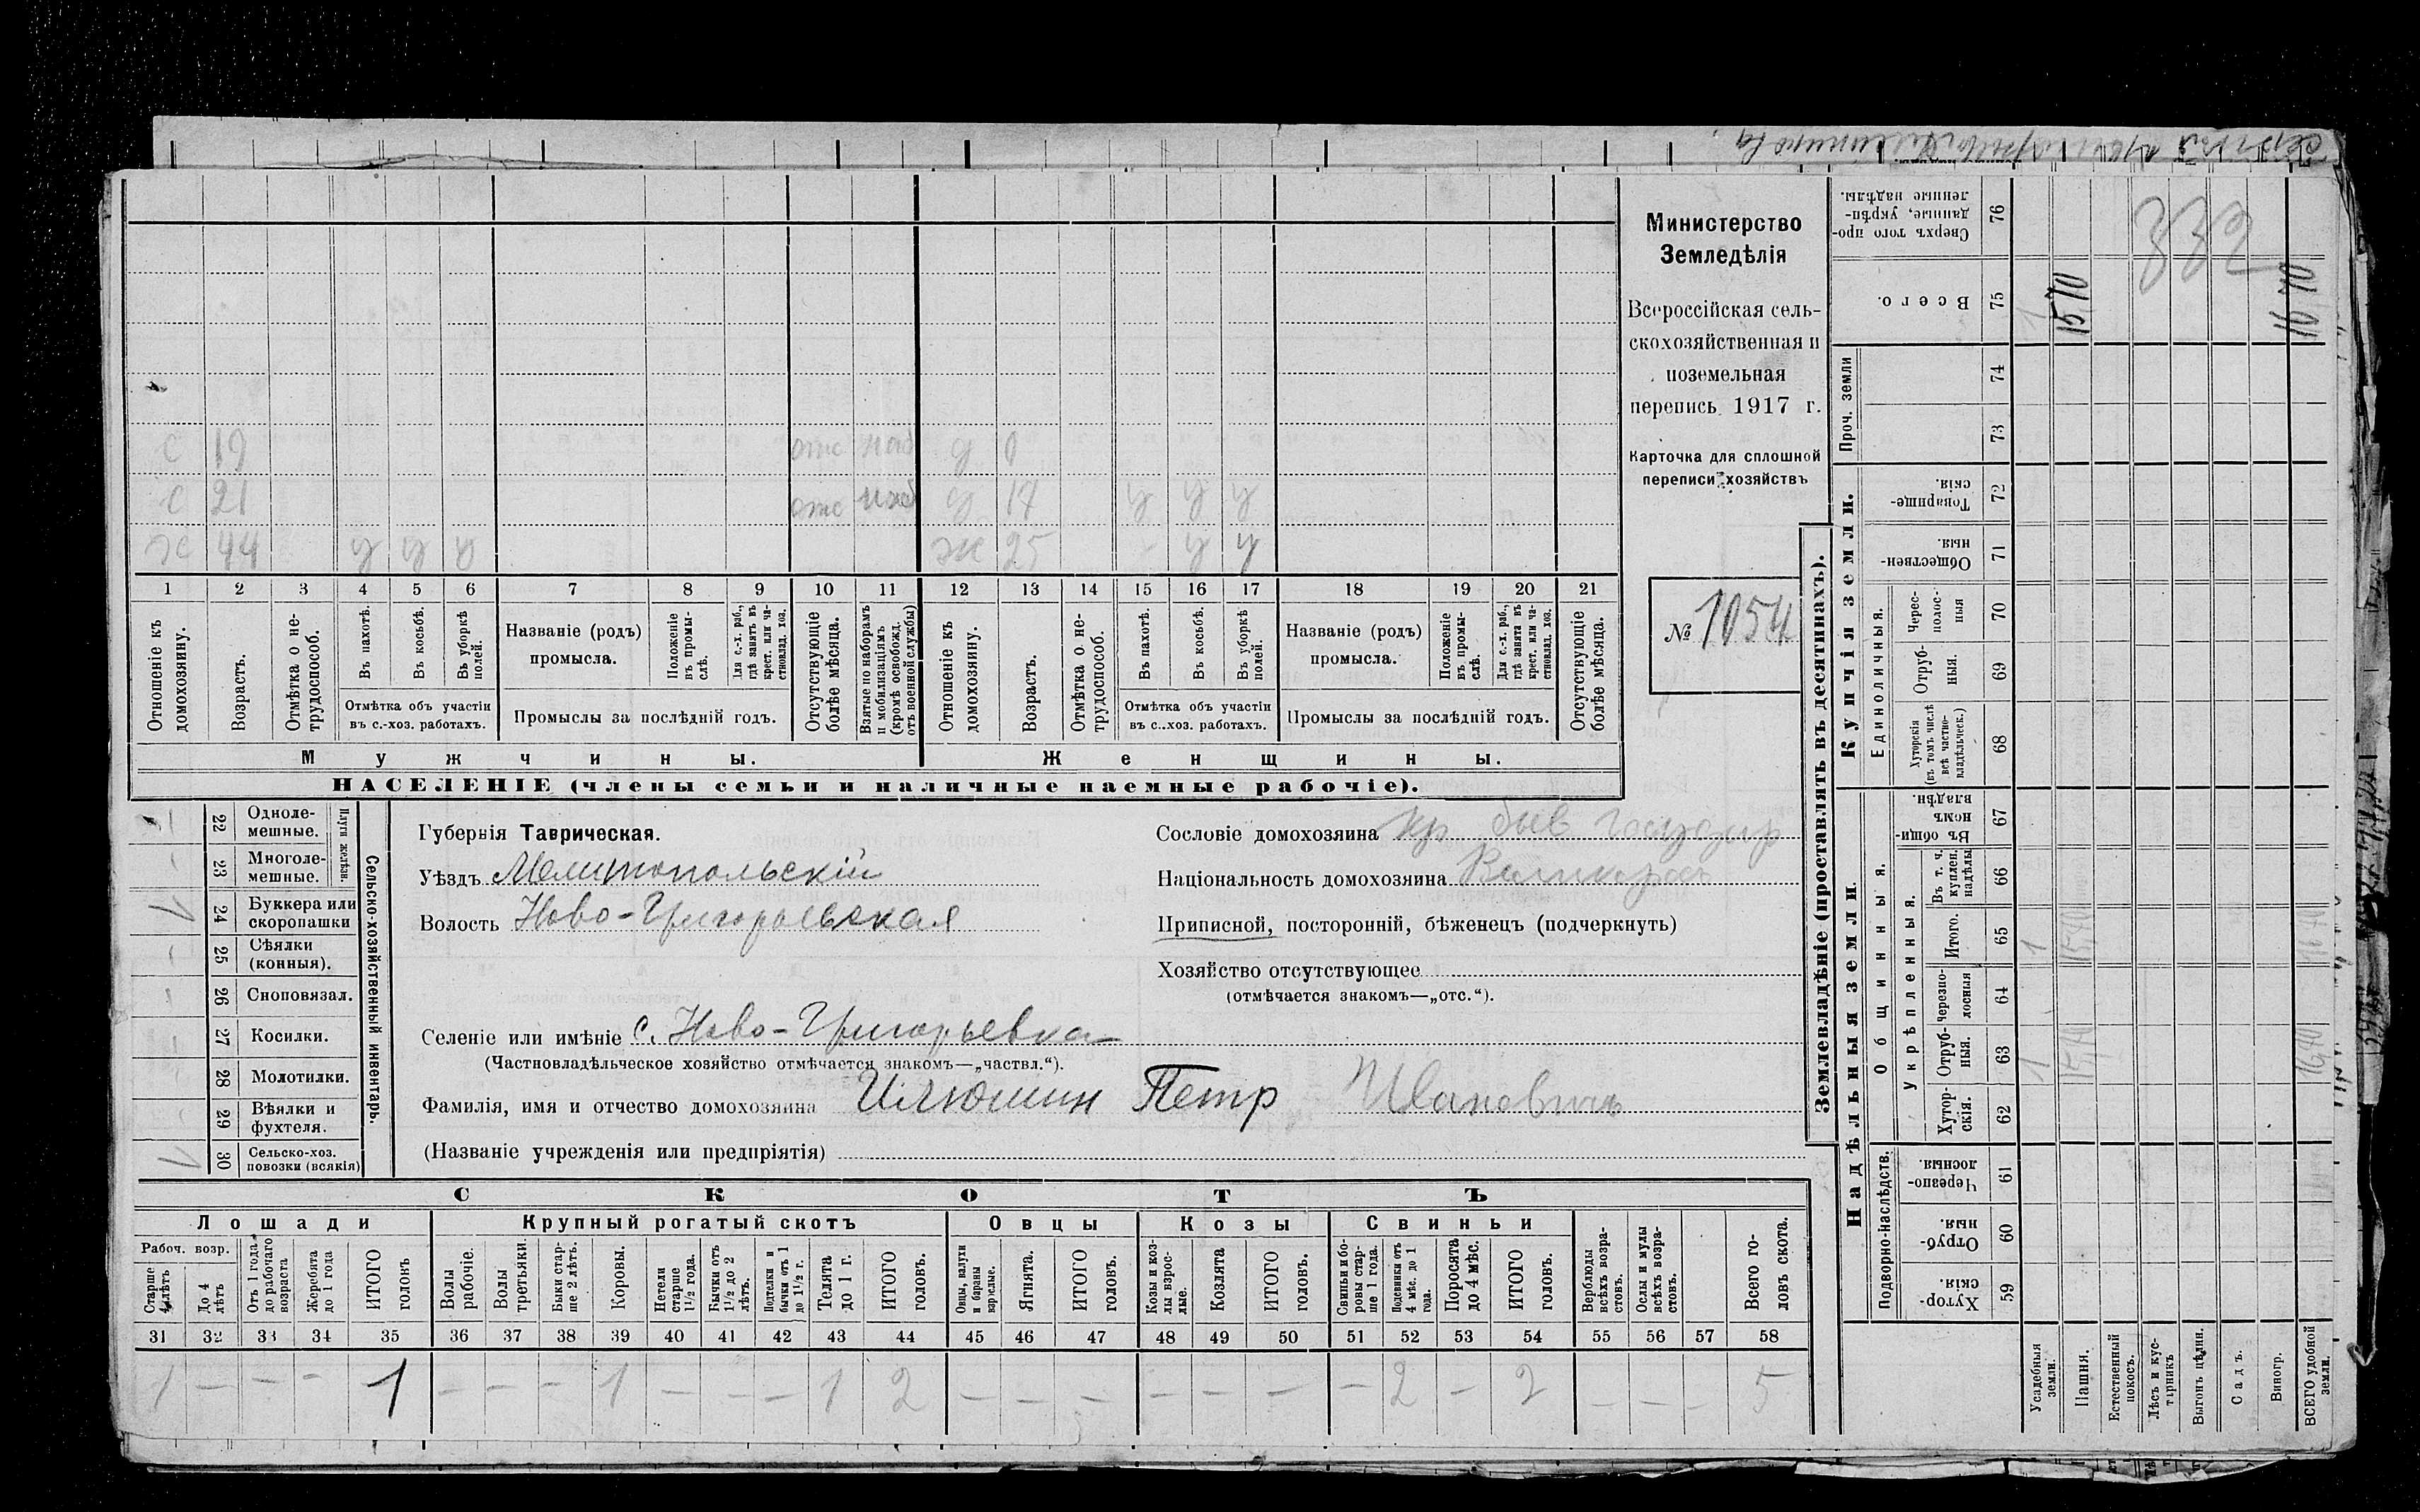 Министерство
Земледѣлія
Всероссійская сель-
скохозяйственная и
поземельная
перепись 1917 г.
Карточка для сплошной
переписи хозяйствъ
№ 1054
с 19 отс моб д 0
с 21 отс моб д 17 у у у
ж 25 у у
44 у у у
1 2 3 4 5 6 7 8 9 10 11 12 13 14 15 16 17 18 19 20 21
Отношеніе къ домохозяину.
Возрастъ.
Отмѣтка о не-трудоспособ.
Въ пахотѣ.
Въ косьбѣ.
Въ уборкѣ полей.
Отмѣтка объ участіи
въ с.-хоз. работахъ.
Названіе (родъ)
промысла.
Положеніе въ промы-слѣ.
Для с.-х. раб., гдѣ занятъ въ крест. или ча-стновлад. хоз.
Промыслы за послѣдній годъ.
Отсутствующіе болѣе мѣсяца.
Взятые по наборамъ и мобилизаціямъ (кромѣ освобожд. отъ военной службы)
Отношеніе къ домохозяину.
Возрастъ.
Отмѣтка о не-трудоспособ.
Въ пахотѣ.
Въ косьбѣ.
Въ уборкѣ полей.
Отмѣтка объ участіи
въ с.-хоз. работахъ.
Названіе (родъ)
промысла.
Положеніе въ промы-слѣ.
Для с.-х. раб., гдѣ занята въ крест. или ча-стновлад. хоз.
Промыслы за послѣдній годъ.
Отсутствующіе болѣе мѣсяца.
Мужчины.
Женщины.
НАСЕЛЕНІЕ (члены семьи и наличные наемные рабочіе).
Сельско-хозяйственный инвентарь.
Плуги желѣзн.
22 Одноле-мешные.
23 Многоле-мешные.
24 Буккера или скоропашки
25 Сѣялки (конныя).
26 Сноповязал.
27 Косилки.
28 Молотилки.
29 Вѣялки и фухтеля.
30 Сельско-хоз. повозки (всякія)
Губернія Таврическая.
Уѣздъ Мелитопольскій
Волость Ново-Григорьевская
Селеніе или имѣніе с. Ново-Григорьевка
(Частновладѣльческое хозяйство отмѣчается знакомъ—„частвл.“).
Фамилія, имя и отчество домохозяина Илюшин Петр Иванович
(Названіе учрежденія или предпріятія)
Сословіе домохозяина кр быв государ
Національность домохозяина
Приписной, посторонній, бѣженецъ (подчеркнуть)
Хозяйство отсутствующее
(отмѣчается знакомъ—„отс.“).
СКОТЪ
Лошади
Крупный рогатый скотъ
Овцы
Козы
Свиньи
Рабоч. возр.
Старше 4 лѣтъ
До 4 лѣтъ
Отъ 1 года до рабочаго возраста
Жеребята до 1 года
ИТОГО головъ
Волы рабочіе.
Волы третьяки.
Быки стар-ше 2 лѣтъ.
Коровы.
Нетели старше 1½ года.
Бычки отъ 1½ до 2 лѣтъ.
Подтелки и бычки отъ 1 до 1½ г.
Телята до 1 г.
ИТОГО головъ.
Овцы, валухи и бараны взрослые.
Ягнята.
ИТОГО головъ.
Козы и коз-лы взрос-лые.
Козлята
ИТОГО головъ.
Свиньи и бо-ровы стар-ше 1 года.
Подсвинки отъ 4 мѣс. до 1 года.
Поросята до 4 мѣс.
ИТОГО головъ.
Верблюды всѣхъ возра-стовъ.
Ослы и мулы всѣхъ возра-стовъ.
Всего го-ловъ скота.
31 32 33 34 35 36 37 38 39 40 41 42 43 44 45 46 47 48 49 50 51 52 53 54 55 56 57 58
1 — — — 1 — — — 1 — — — 1 2 — — — — — — — 2 — 2 — — — 5
Землевладѣніе (проставлять въ десятинахъ).
Надѣльныя земли.
Купчія земли.
Проч. земли
Подворно-наслѣдств.
Общинныя.
Укрѣпленныя.
Единоличныя.
59 Хутор-скія.
60 Отруб-ныя.
61 Черезпо-лосныя.
62 Хутор-скія.
63 Отруб-ныя.
64 Черезпо-лосныя
65 Итого.
66 Въ т. ч. куплен. надѣлы
67 Въ общи-номъ владѣн.
68 Хуторскія (въ томъ числѣ всѣ частно-владѣльческ.)
69 Отруб-ныя.
70 Черес-полос-ныя
71 Обществен-ныя.
72 Товарище-скія.
73
74
75 Всего.
76 Сверхъ того про-данные, укрѣп-ленные надѣлы.
Усадебныя земли.
Пашня.
Естественный покосъ.
Лѣсъ и кус-тарникъ
Выгонъ цѣлин.
Садъ.
Виногр.
ВСЕГО удобной земли.
1 1 1
1570 1570 1570
1670 1670 1670
332